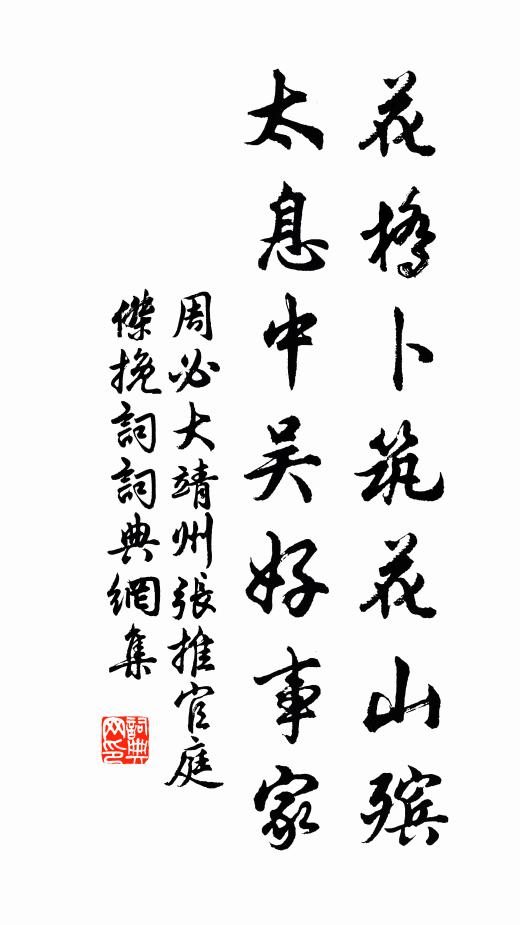 花橋卜筑花山殡
太息中吴好事家
周必大靖州張推官庭
傑挽詞詞典網集
詞典網印